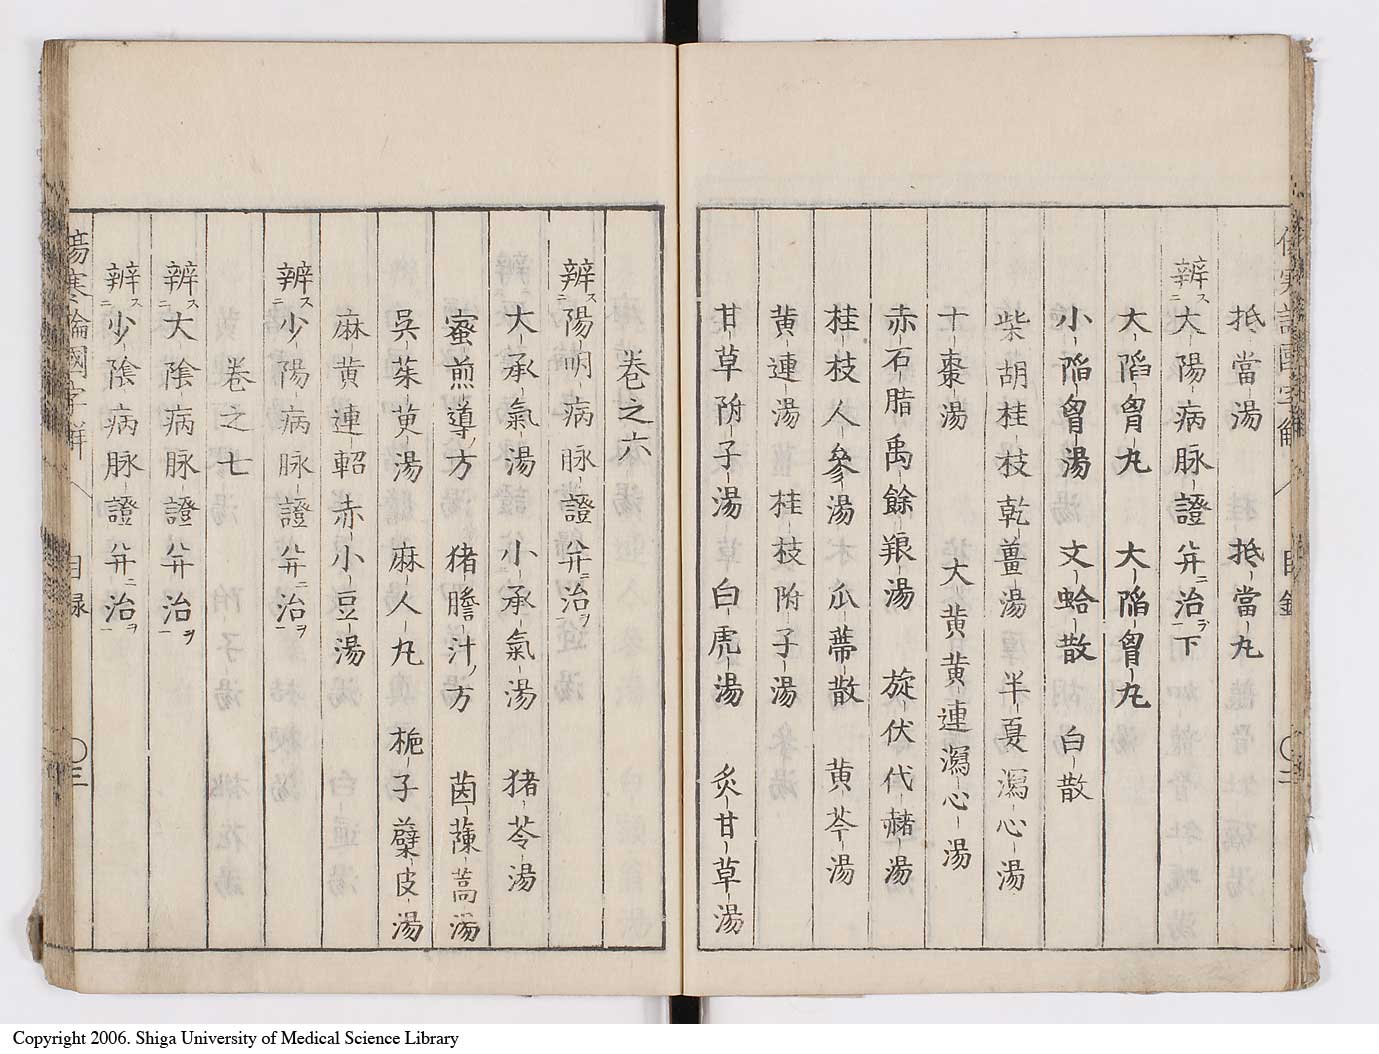 抵當湯　抵當丸
辨ス二大陽病脉證并二治ヲ一下
大䧟胷丸　大䧟胷丸
小䧟胷湯　文蛤散　白散
柴胡桂枝乾薑湯　半夏瀉心湯
十棗湯　大黄黄連瀉心湯
赤石脂禹餘粮湯　旋伏代赭湯
桂枝人參湯　瓜蔕散　黄芩湯
黄連湯　桂枝附子湯
甘草附子湯　白虎湯　炙甘草湯
卷之六
辨ス二陽明病脉證并二治ヲ一
大承氣湯　小承氣湯　猪苓湯
蜜煎導ノ方　猪膽汁ノ方　茵蔯蒿湯
吳茱萸湯　麻人丸　梔子蘗皮湯
麻黄連軺赤小豆湯
辨ス二少陽病脉證并二治ヲ一
卷之七
辨ス二大陰病脉證并治ヲ一
辨ス二少陰病脉證并二治ヲ一
傷寒論國字解　目録　〇三
Copyright 2006. Shiga University of Medical Science Library